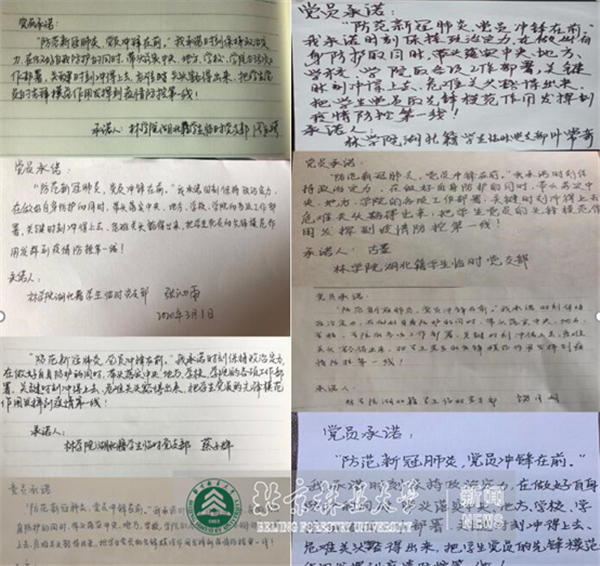 党员承诺
"防范新冠肺炎,党员冲锋在前。"我承诺时刻保持政治定
力,在做好自身防护的同时,带头落实中央、地方、学校、学院各项工
作部署,关键时刻冲得上去、危难关头豁得出来,把学生党
员的先锋模范作用发挥到疫情防控第一线!
承诺人:林学院湖北籍学生临时党支部
党员承诺:
"防范新冠肺炎,党员冲锋在前。"
我承诺时刻保持政治定力,在做好自
身防护的同时,带头落实中央、地方、
学校、学院各项工作部署,关键
时刻冲得上去、危难关头豁得出来,
把学生党员的先锋模范作用发挥到
疫情防控第一线!
承诺人:
林学院湖北籍学生临时党支部
党员承诺:
"防范新冠肺炎,党员冲锋在前。"我承诺时刻保持政治定力,
在做好自身防护的同时,带头落实中央、地方、学校、学院的各项工作部
署,关键时刻冲得上去、危难关头豁得出来,把学生党员的先锋模范作
用发挥到疫情防控第一线!
承诺人:
林学院湖北籍学生临时党支部
2020年3月1日
党员承诺:
"防范新冠肺炎,党员冲锋在前。"我承诺时刻保
持政治定力,在做好自身防护的同时,带头落实中
央、地方、学院的各项工作部署,关键时刻冲得上去
危难关头豁得出来,把学生党员的先锋模范作
用发挥到疫情防控第一线。
承诺人:古
林学院湖北籍学生临时党支部
"防范新冠肺炎,党员冲锋在前。"我承诺时刻保持政治定力,
在做好自身防护的同时,带头落实中央、地方、学校、学院的各项工作部
署,关键时刻冲得上去、危难关头豁得出来,把学生党员的先锋模范
作用发挥到疫情第一线!
承诺人:
林学院湖北籍学生临时党支部 蔡
党员承诺:
"防范新冠肺炎,党员冲锋在前。"我承诺时刻保持
政治定力,在做好自身防护的同时,带头落实中央、地方、
承诺人:
林学院湖北籍学生临时党支部
党员承诺
"防范新冠肺炎,党员冲锋在前。"我承诺时刻
上去、危难关头豁得出来,把学生党员的先锋模范作用发挥到疫情防控第一线!
党员承诺:
"防范新冠肺炎,党员冲锋在前。"
我承诺时刻保持政治定力,在做好自身
地方、学校、学
部署,关键时刻冲得上去、
危难关头豁得出来,把学生党员的先锋模范
北京林业大学 新闻
BEIJING FORESTRY UNIVERSITY NEWS